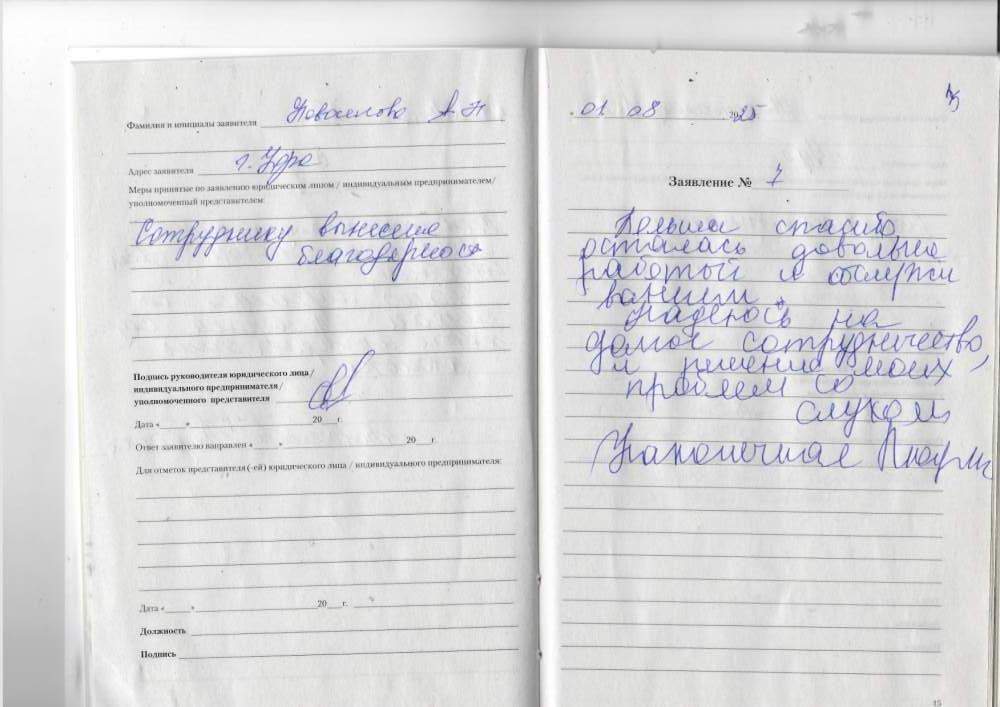 Фамилия и инициалы заявителя Новоселова А Н
Адрес заявителя г. Уфа
Меры принятые по заявлению юридическим лицом / индивидуальным предпринимателем/
уполномоченный представителем:
Сотруднику вынесена
благодарность
Подпись руководителя юридического лица/
индивидуального предпринимателя/
уполномоченного представителя
Дата «____» 20___г.
Ответ заявителю направлен «____» 20___г.
Для отметок представителя (-ей) юридического лица / индивидуального предпринимателя:
Дата «____» 20___г.
Должность
Подпись
01 08 2025
Заявление № 7
спасибо,
осталась довольна
работой и обслужи
ванием.
Надеюсь на
сотрудничество,
и решение моих
проблем со
слухом
15